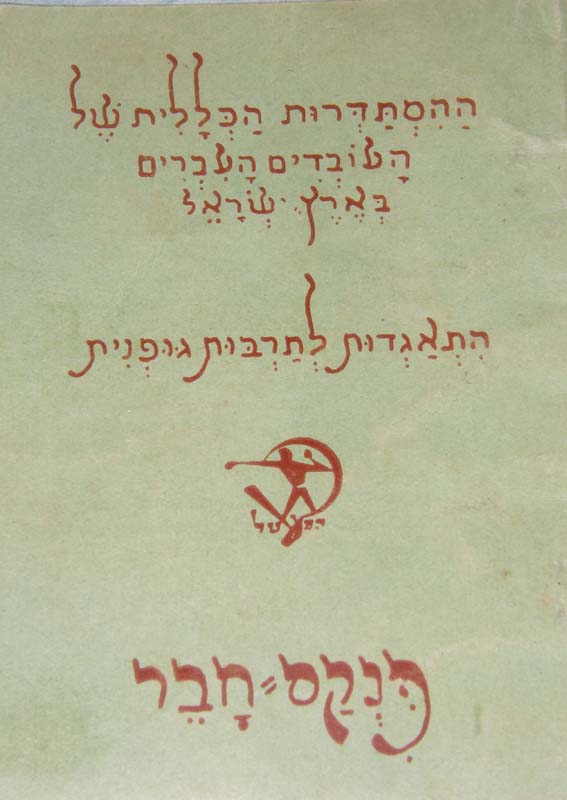 הַהִסְתַּדְּרוּת הַכְּלָלִית שֶׁל
הָעוֹבְדִים הָעִבְרִים
בְּאֶרֶץ יִשְׂרָאֵל
הִתְאַגְדוּת לְתַרְבּוּת גוּפְנִית
הפועל
פִּנְקַס=חָבֵר